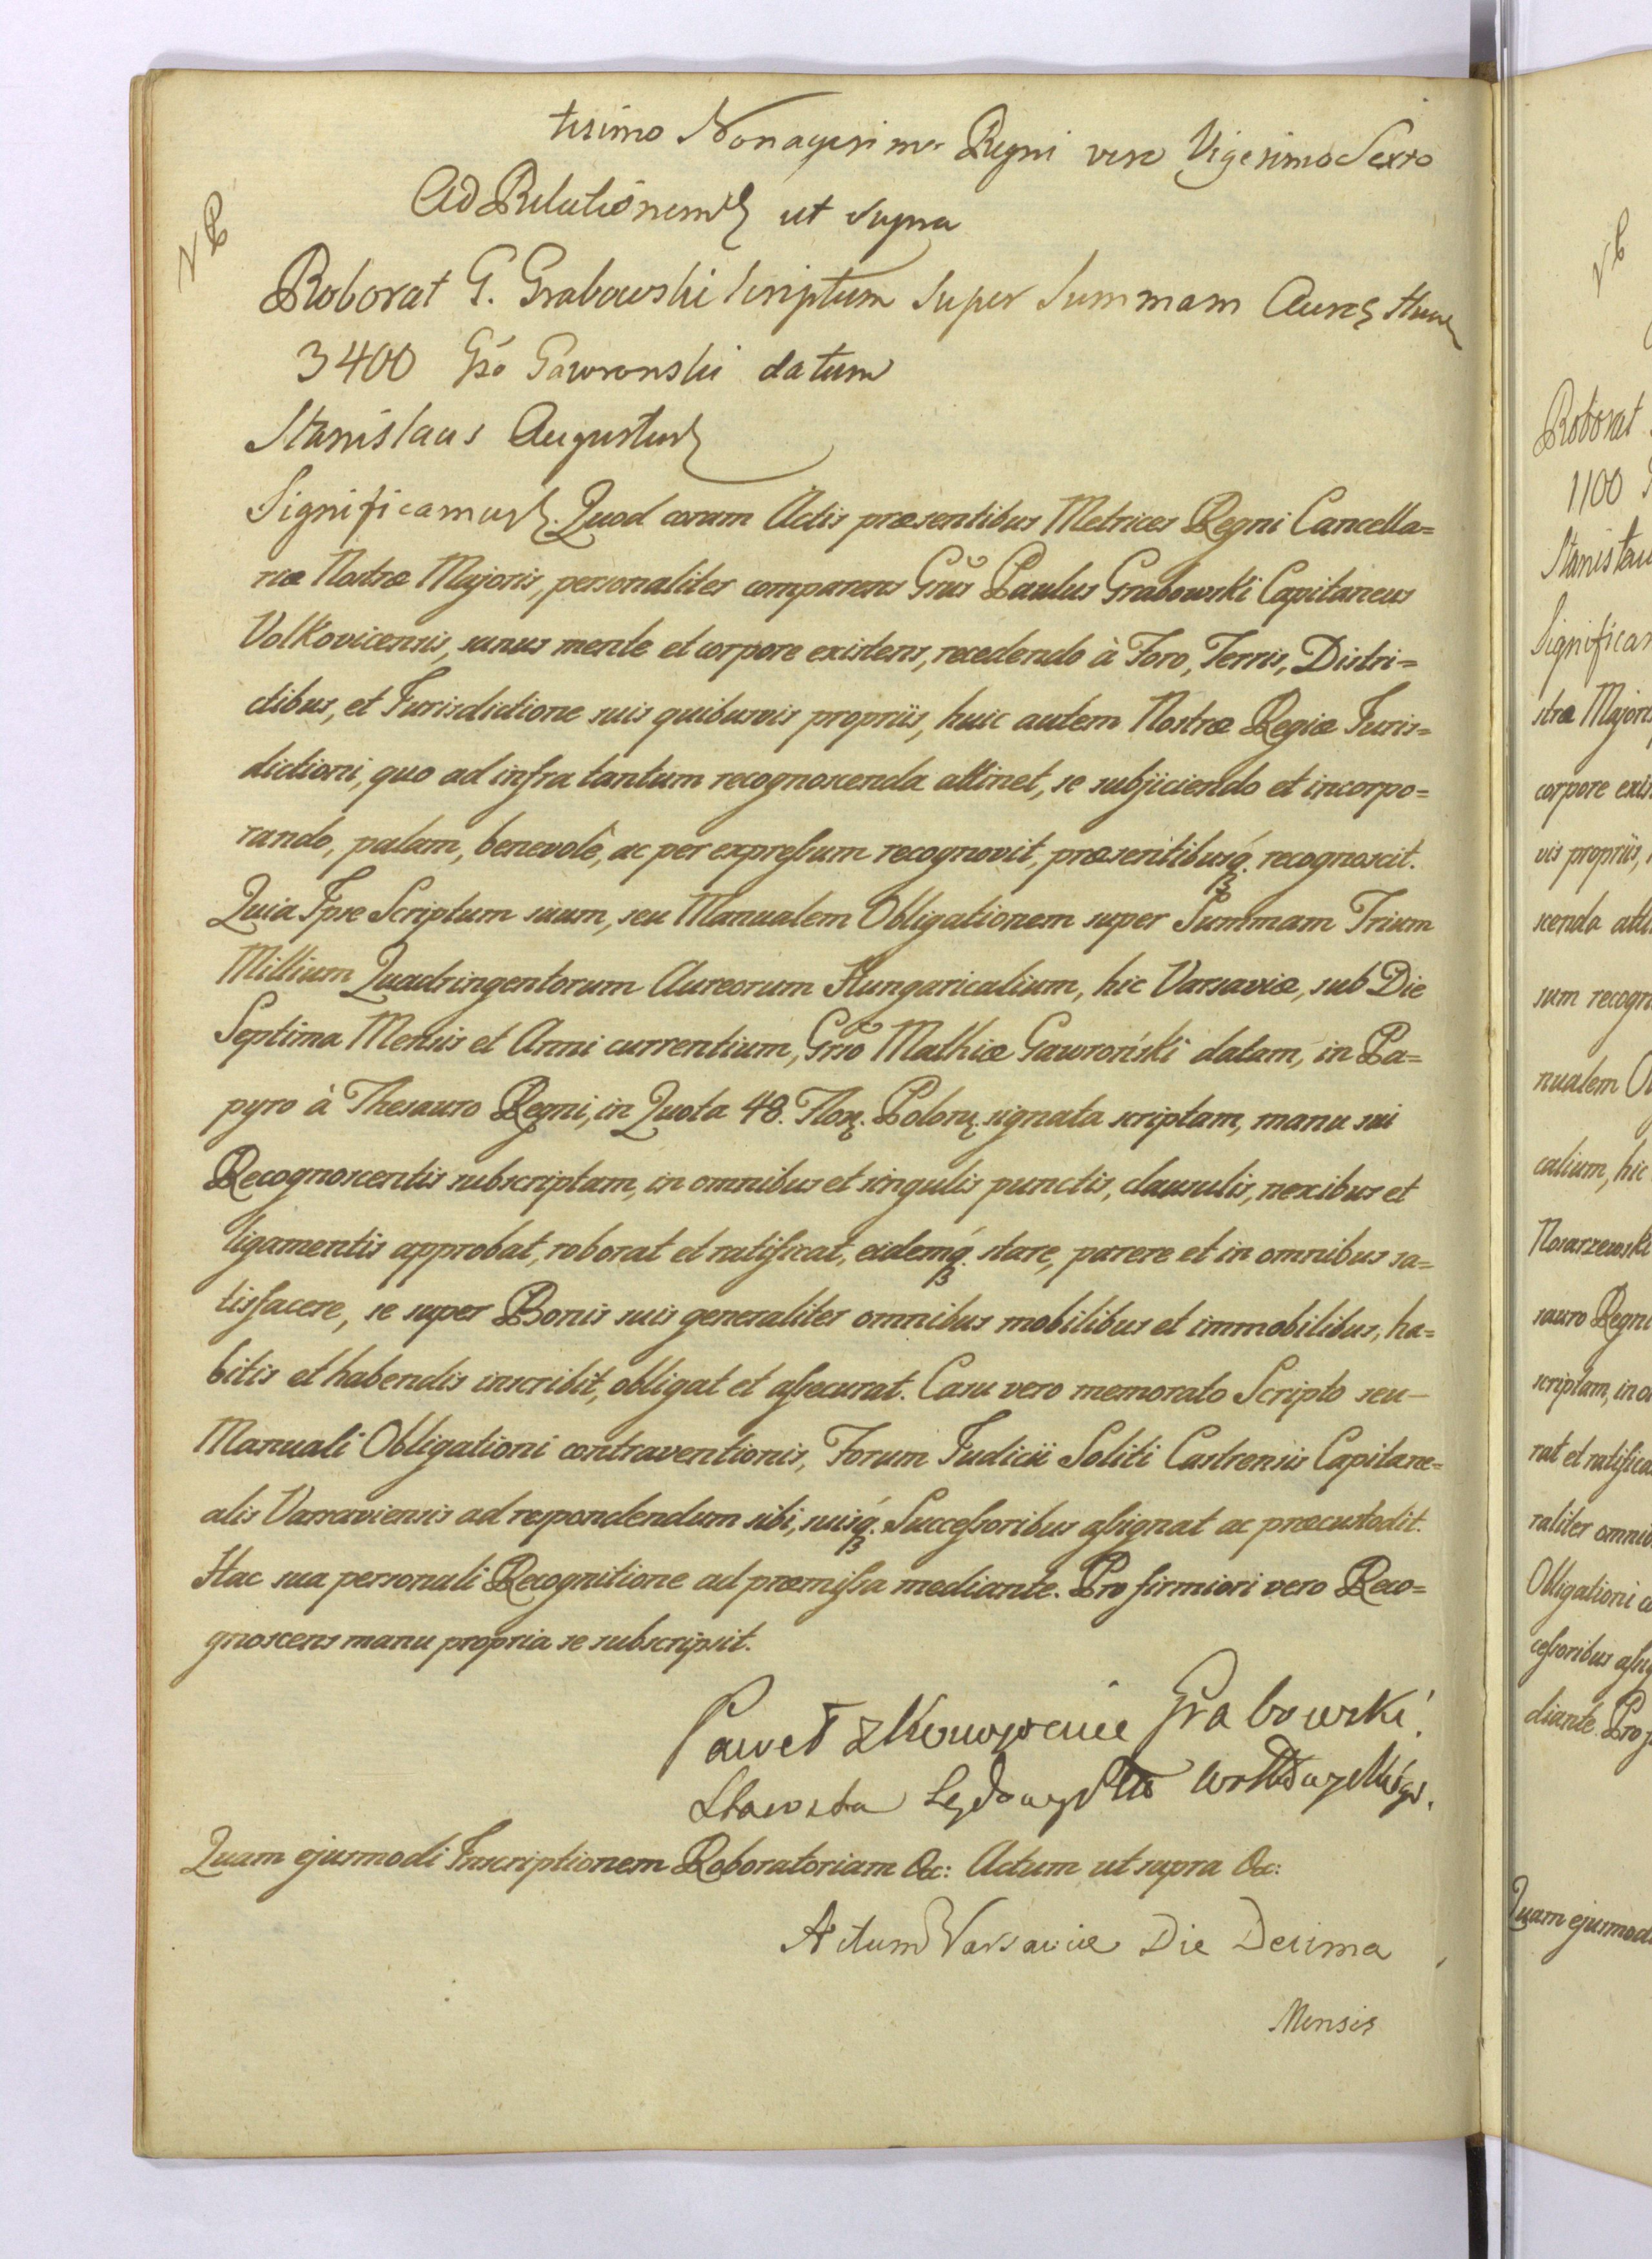 tesimo Nonagesimo Regni vero Vigesimo Sexto
Ad Relationem ut supra
NB
Roborat G. Grabowski Scriptum super Summam Aureo Hun
3400 Gso Gawronski datum
Stanislaus Augustus
Significamus. Quod coram Actis præsentibus Metrices Regni Cancella=
riæ Nostræ Majoris, personaliter comparens Grūs Paulus Grabowski Capitaneus
Volkovicensis, sanus mente et corpore existens, recedendo à Foro, Terris, Distri=
ctibus, et Jurisdictione suis quibusvis propriis, huic autem Nostræ Regiæ Juris=
dictioni, quo ad infra tantum recognoscenda attinet, se subjiciendo et incorpo=
rando, palam, benevolê, ac per expreſsum recognovit, præsentibusq́. recognoscit.
Quia Ipse Scriptum suum, seu Manualem Obligationem super Summam Trium
Millium Quadringentorum Aureorum Hungaricalium, hic Varsaviæ, sub Die
Septima Mensis et Anni currentium, Grsō Mathiæ Gawroński datam, in Pa=
pyro à Thesauro Regni, in Quota 48. Floꝝ. Polonꝝ. signata scriptam, manu sui
Recognoscentis subscriptam, in omnibus et singulis punctis, clausulis, nexibus et
ligamentis approbat, roborat et ratificat, eidemq́. stare, parere et in omnibus sa=
tisfacere, se super Bonis suis generaliter omnibus mobilibus et immobilibus, ha=
bitis et habendis inscribit, obligat et aſsecurat. Casu vero memorato Scripto seu
Manuali Obligationi contraventionis, Forum Judicii Soliti Castrensis Capitane=
alis Varsaviensis ad respondendum sibi, suisq́. Succeſsoribus aſsignat ac præcustodit.
Hac sua personali Recognitione ad præmiſsa mediante. Pro firmiori vero Reco=
gnoscens manu propria se subscripsit.
Paweł z Grabowski
Starosta
Quam ejusmodi Inscriptionem Roboratoriam &c: Actum ut supra &c:
Actum Varsaviæ Die Decima
Mensis
NB
Roborat
1100
Stanislau
Significam
stræ Majoris
corpore exis
vis propriis,
scenda atti
sum recogn
nualem O
calium, hic
Nosarzewski
sauro Regni
scriptam, in o
rat et ratifica
raliter omnib
Obligationi co
ceſsoribus aſsig
diante. Pro f
Quam ejusmodi